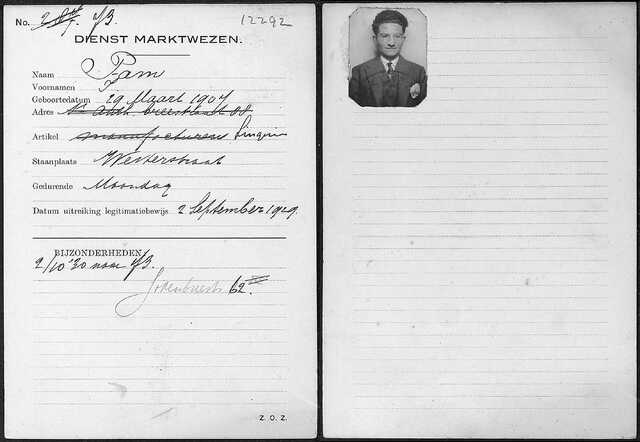 No. 12292
DIENST MARKTWEZEN.
Naam Pam
Voornamen
Geboortedatum 29 Maart 1907
Adres
Artikel manufacturen Lingerie
Staanplaats Westerstraat
Gedurende Maandag
Datum uitreiking legitimatiebewijs 2 September 1929.
BIJZONDERHEDEN
2/10 '30 naar
62
Z. O. Z.